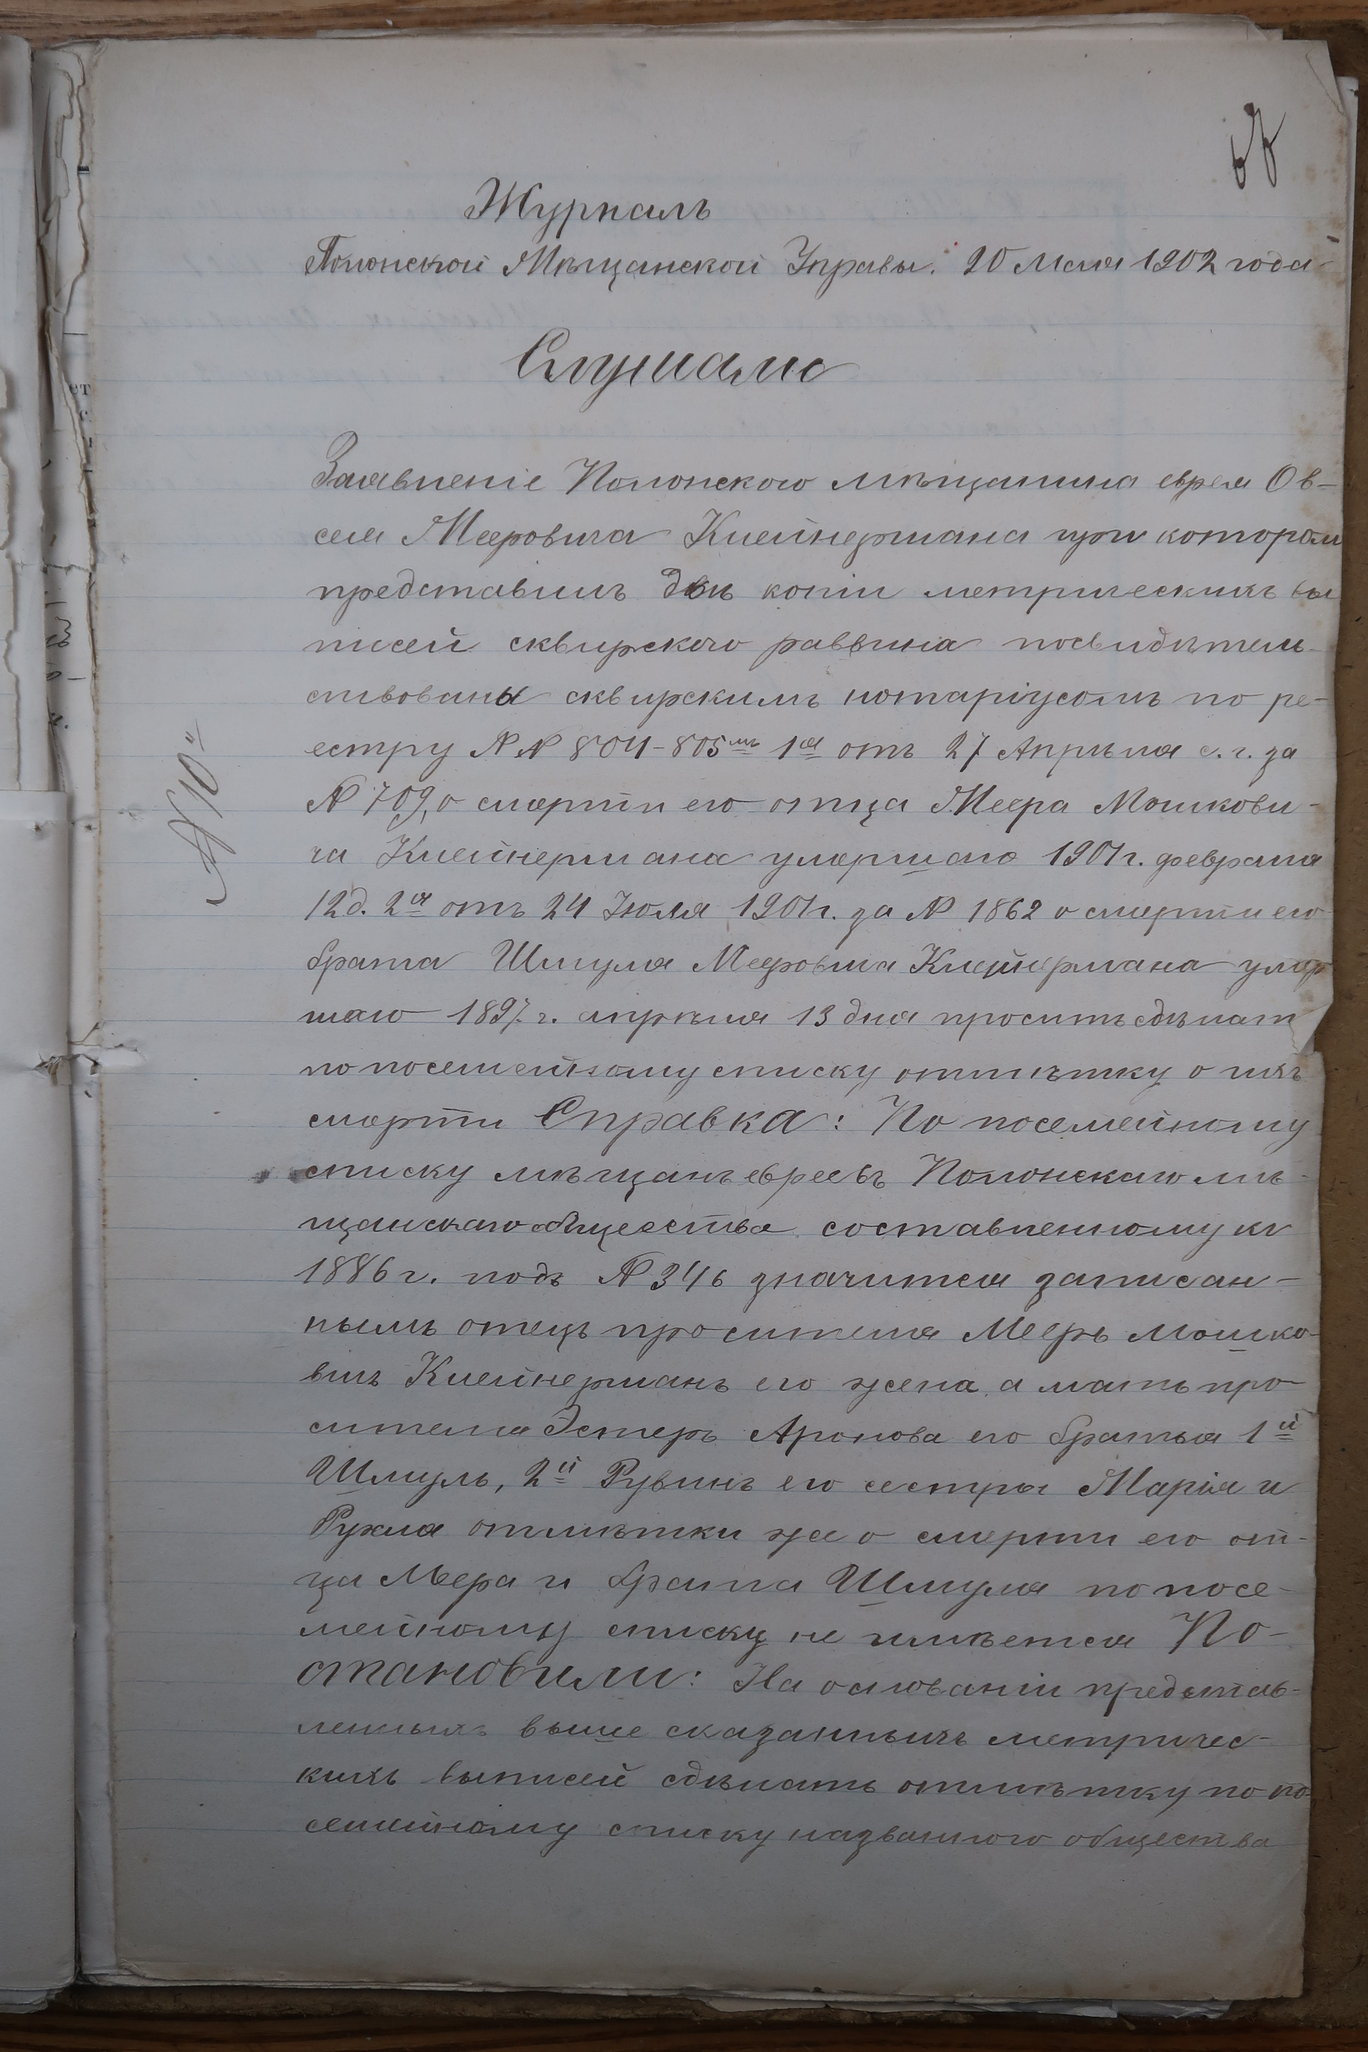 Журналъ
Полонской Мѣщанской Управы. 20 Мая 1902 года
Слушали
Заявленіе Полонского мѣщанина еврея Ов-
сея Мееровича Клейнермана при котором
представилъ двѣ копіи метрическихъ вы
писей сквирского раввина посвидѣтель-
ствованы сквирскимъ нотаріусомъ по ре-
естру №№ 804-805мъ 1я отъ 27 Апрѣля с. г. за
№ 709, о смерти его отца Меера Мошкови-
ча Клейнермана умершаго 1901 г. февраля
12 д. 2я отъ 24 Іюля 1901 г. за № 1862 о смерти его
брата Шмуля Мееровича Клейнермана умер
шаго 1897 г. апрѣля 13 дня проситъ сдѣлат
по посемейному списку отмѣтку о ихъ
смерти Справка: По посемейному
списку мѣщанъ евреевъ Полонскаго мѣ-
щанскаго общества составленному къ
1886 г. подъ № 346 значится записан-
нымъ отецъ просителя Мееръ Мошко-
вичъ Клейнерманъ его жена, а мать про-
сителя Эстеръ Аронова его братья 1й
Шмуль, 2й Рувинъ его сестры Марія и
Рухля отмѣтки же о смерти его от-
ца Меера и брата Шмуля по посе-
мейному списку не имѣется По-
становили: На основаніи представ-
ленныхъ выше сказанныхъ метричес-
кихъ выписей сдѣлать отмѣтку по по-
семейному списку названного общества
№ 10